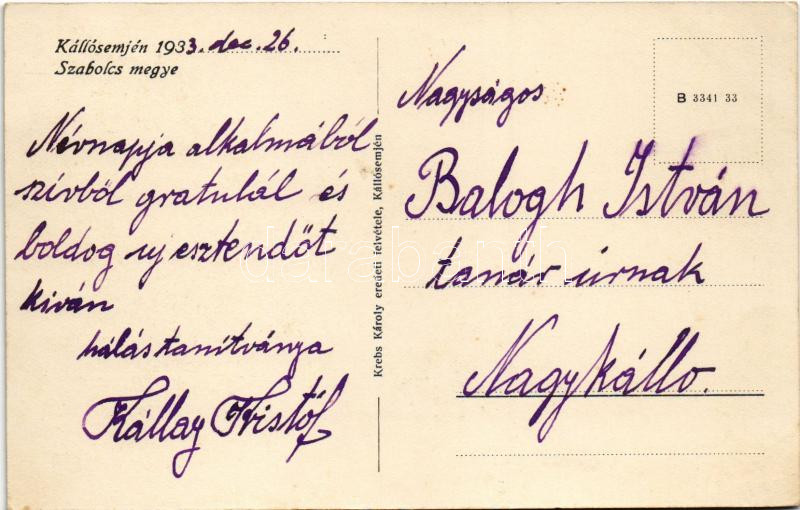 Kállósemjén 1933. dec. 26.
Szabolcs megye
Névnapja alkalmából
szívből gratulál és
boldog uj esztendőt
kiván
hálás tanítványa
Kállay Kristóf
Krebs Károly eredeti felvétele, Kállósemjén
B 3341 33
Nagyságos
Balogh István
tanár úrnak
Nagykálló.
darabanth.com